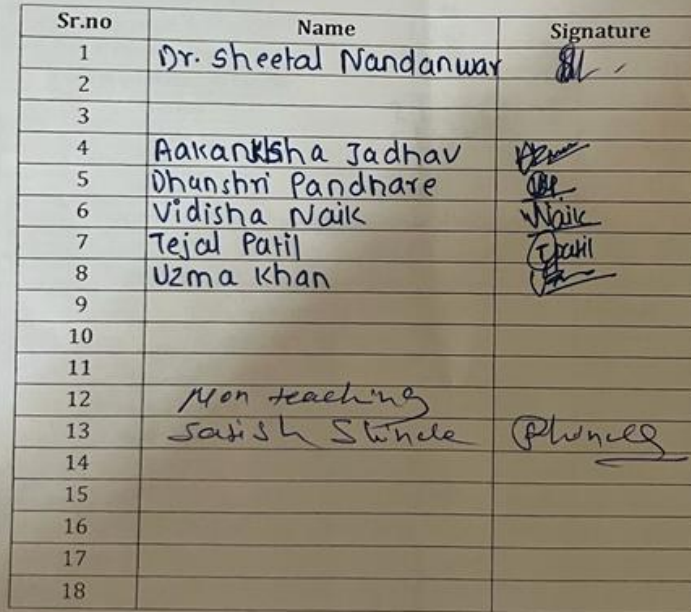 Sr.no Name Signature
1 Dr. Sheetal Nandanwar
2
3
4 Aakanksha Jadhav
5 Dhanshri Pandhare
6 Vidisha Naik VNaik
7 Tejal Patil Tpatil
8 Uzma Khan
9
10
11
12 Non teaching
13 Satish Shinde
14
15
16
17
18